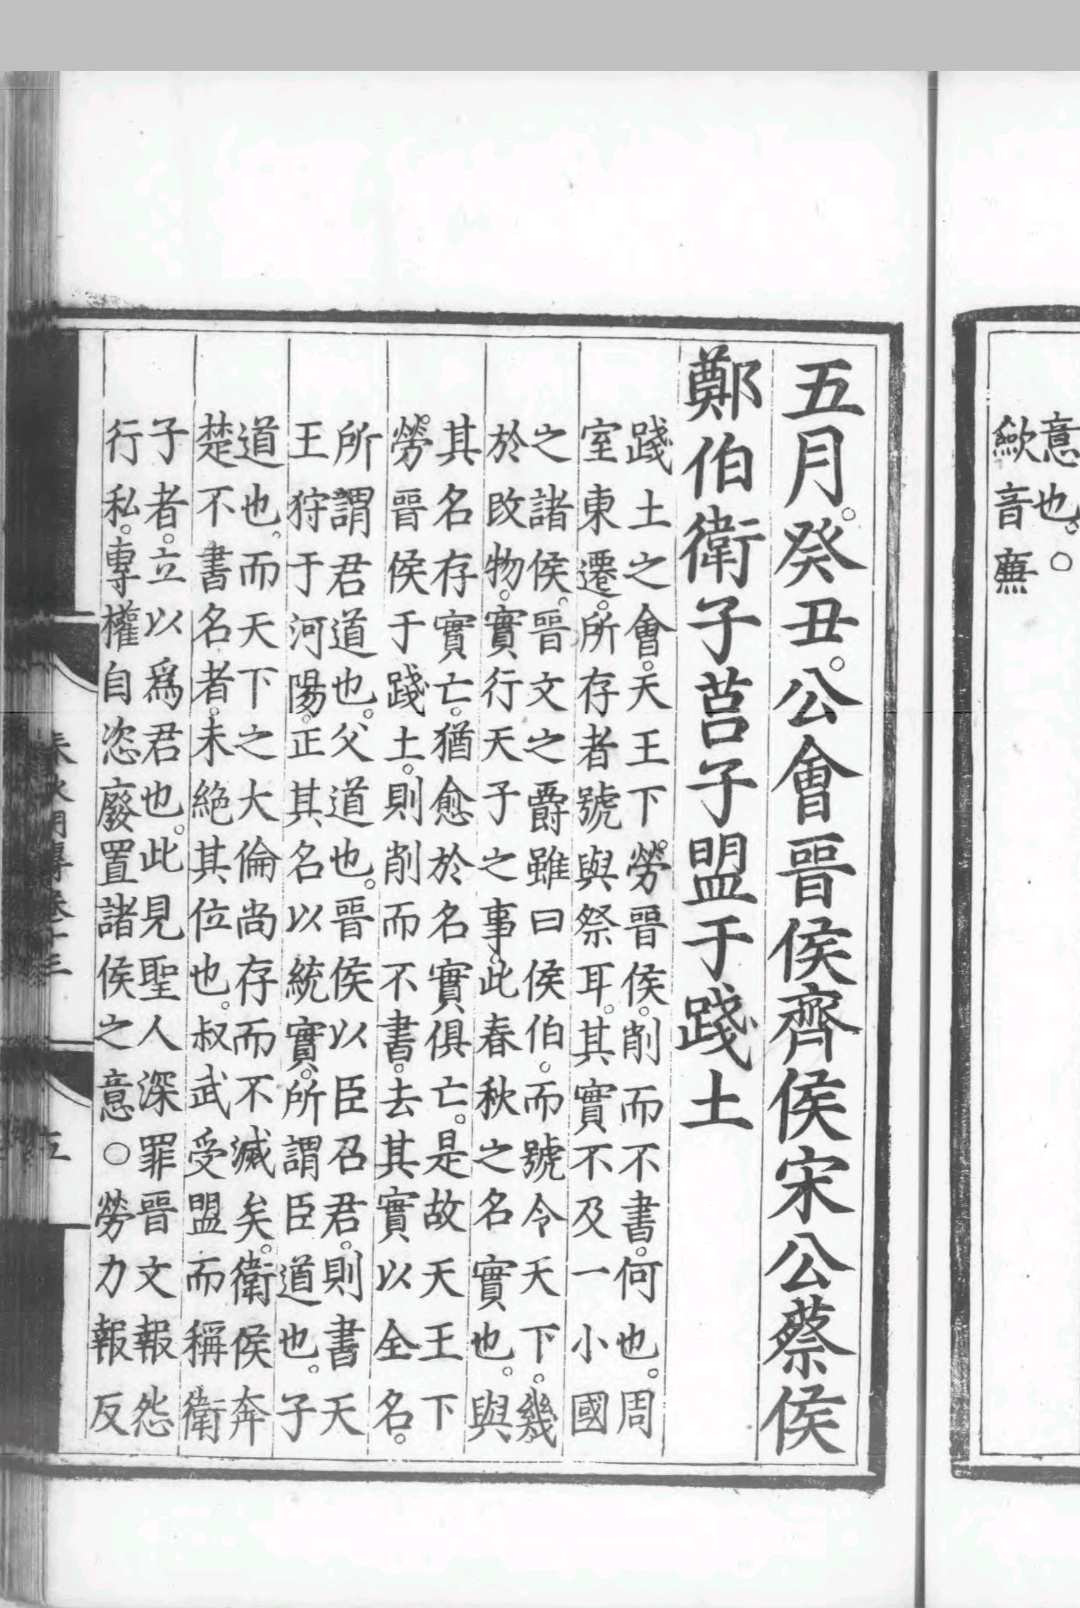 意也。○
歟音蕪
五月。癸丑。公會晉侯齊侯宋公蔡侯
鄭伯衛子莒子盟于踐土
踐土之會。天王下。勞晉侯。削而不書。何也。周
室東遷。所存者號與祭耳。其實不及一小國
之諸侯。晉文之爵雖曰侯伯。而號令天下。幾
於改物。實行天子之事。此春秋之名實也。與
其名存實亡。猶愈於名實俱亡。是故天王下
勞。晉侯于踐土。則削而不書。去其實以全名。
所謂君道也。父道也。晉侯以臣召君。則書天
王狩于河陽。正其名以統實。所謂臣道也。子
道也。而天下之大倫尚存而不滅矣。衛侯奔
楚不書名者。未絕其位也。叔武受盟而稱衛
子者。立以爲君也。此見聖人深罪晉文報怨
行私。專權自恣廢置諸侯之意。○勞力報反
五